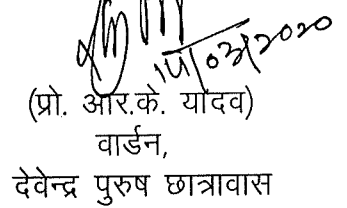 14/03/2020
(प्रो. आर.के. यादव)
वार्डन,
देवेन्द्र पुरुष छात्रावास